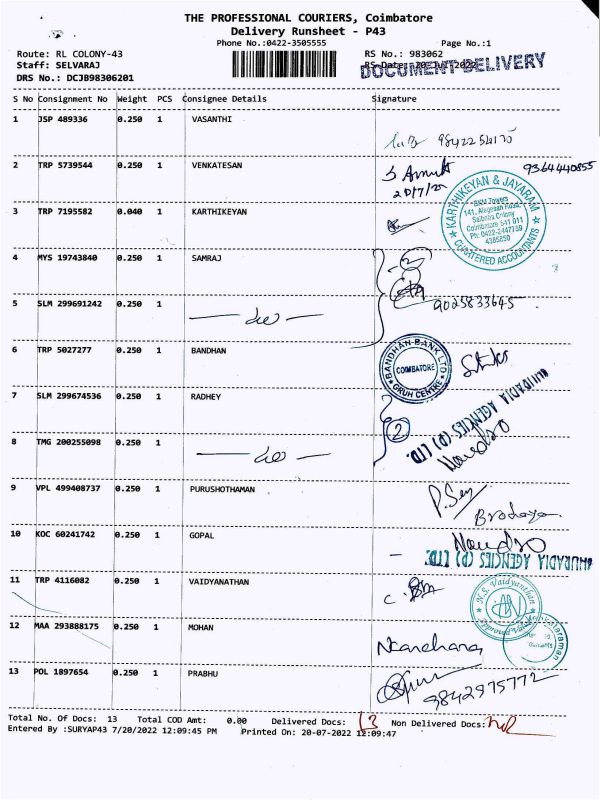 THE PROFESSIONAL COURIERS, Coimbatore
Delivery Runsheet - P43
Phone No.:0422-3505555 Page No.:1
Route: RL COLONY-43 RS No.: 983062
Staff: SELVARAJ RS Date: 20 Jul 2022
DOCUMENT DELIVERY
DRS No.: DCJB98306201
S No Consignment No Weight PCS Consignee Details Signature
1 JSP 489336 0.250 1 VASANTHI
2 TRP 5739544 0.250 1 VENKATESAN
9364440855
20/7/22
3 TRP 7195582 0.040 1 KARTHIKEYAN
KARTHIKEYAN & JAYARAM
CHARTERED ACCOUNTANTS
BKM Towers
141, Alagesan Road,
Saibaba Colony
Coimbatore 641 011
Ph: 0422-2447789
4385650
4 MYS 19743840 0.250 1 SAMRAJ
5 SLM 299691242 0.250 1
9025833645
6 TRP 5027277 0.250 1 BANDHAN
BANDHAN BANK LTD
COIMBATORE
GRUH CENTRE
7 SLM 299674536 0.250 1 RADHEY
2
AGENCIES (P) LTD.
8 TMG 200255098 0.250 1
9 VPL 499408737 0.250 1 PURUSHOTHAMAN
10 KOC 60241742 0.250 1 GOPAL
AGENCIES (P) LTD.
11 TRP 4116082 0.250 1 VAIDYANATHAN
12 MAA 293888175 0.250 1 MOHAN
13 POL 1897654 0.250 1 PRABHU
9842975772
Total No. Of Docs: 13 Total COD Amt: 0.00 Delivered Docs: 13 Non Delivered Docs:
Entered By :SURYAP43 7/20/2022 12:09:45 PM Printed On: 20-07-2022 12:09:47